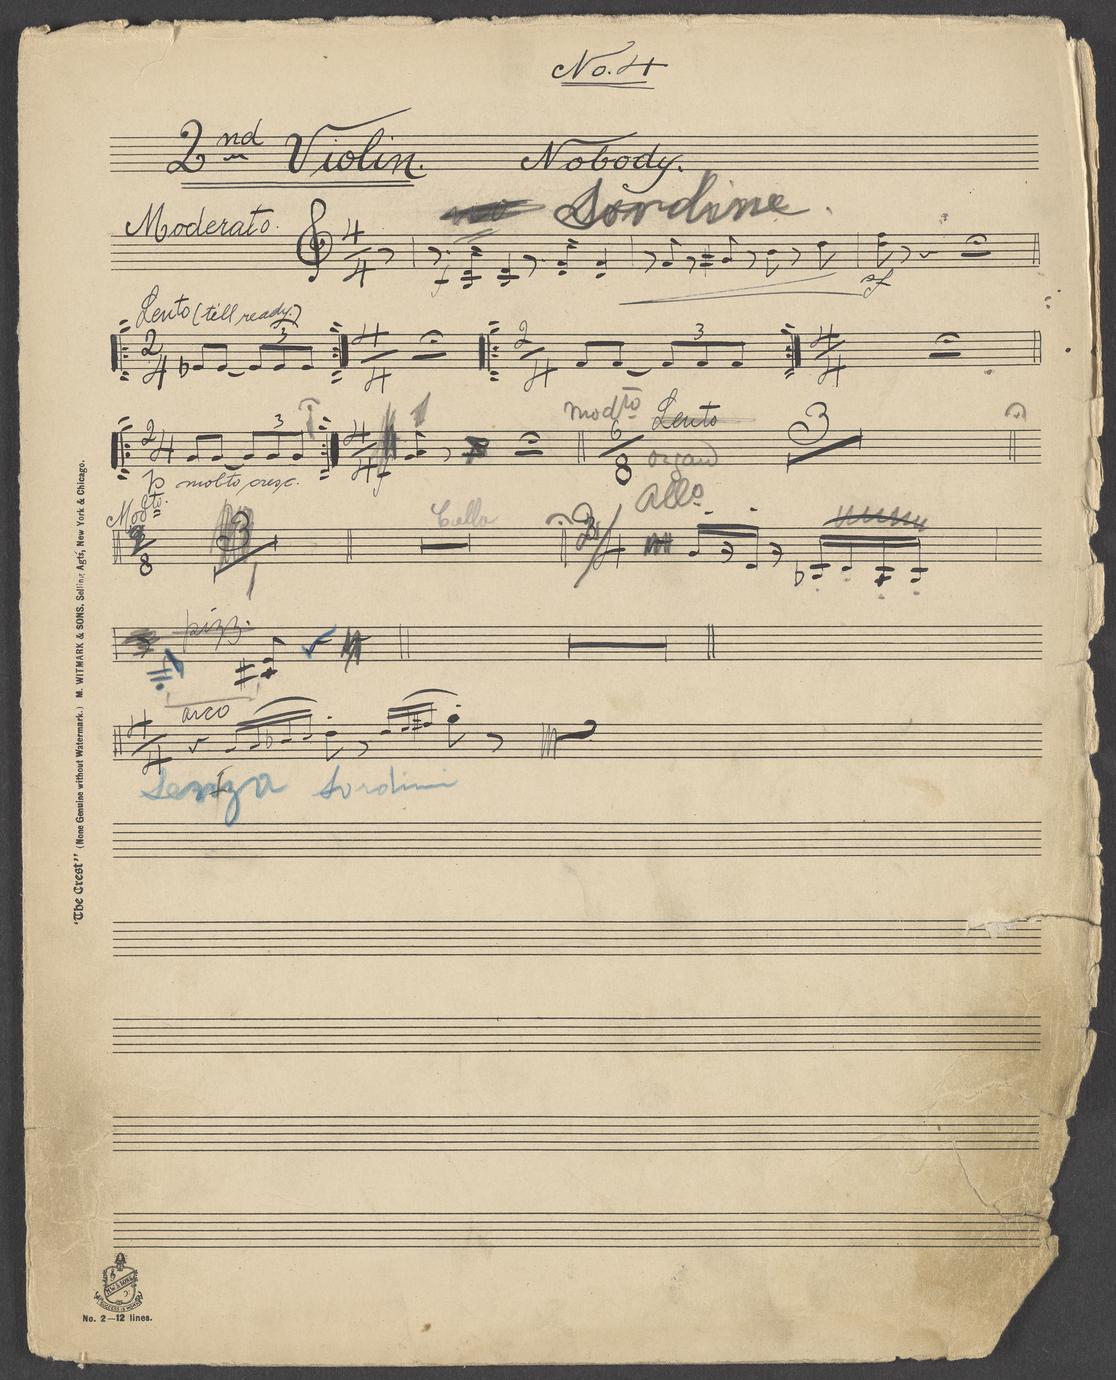 No. 4
2nd Violin. Nobody.
Sordine.
Moderato. 4/4 f sf
Lento (till ready.)
2/4 3 4/4 2/4 3 4/4
modto Lento
2/4 3 4/4 f 6/8 3
organ
p molto cresc.
Modto. Allo
Cello
6/8 3 3/4
pizz.
arco
4/4
Senza Sordini
"The Crest" (None Genuine without Watermark.) M. WITMARK & SONS. Selling Agts, New York & Chicago.
M.W. & SONS
SUCCESS IS WORK
No. 2—12 lines.